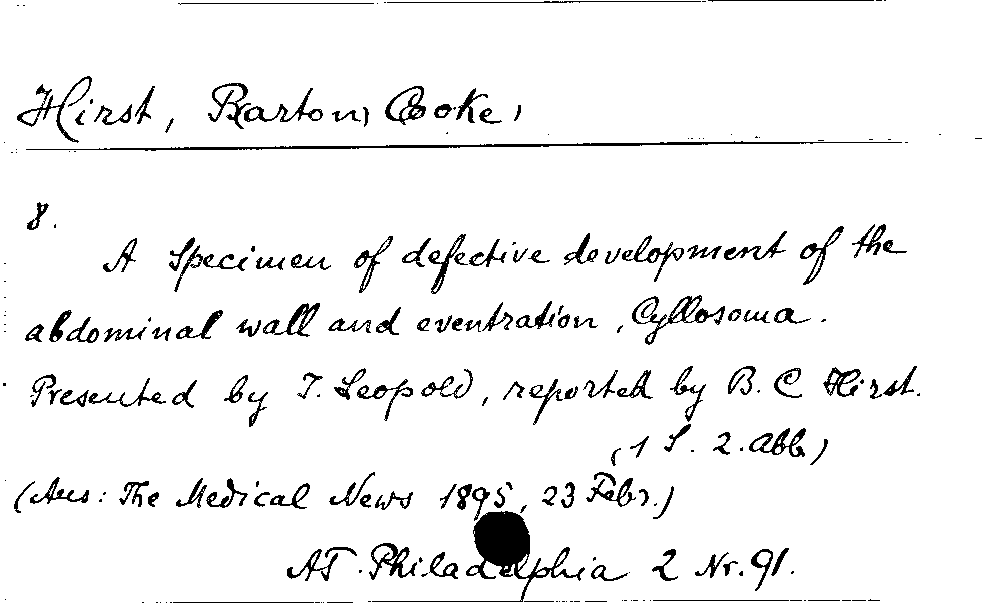 Hirst, Barton, Cooke,
8.
A Specimen of defective development of the
abdominal wall and eventration, Cyllosoma.
Presented by T. Leopold, reported by B. C Hirst.
(1 S. 2. Abb.)
(Aus: The Medical News 1895, 23 Febr.)
AT. Philadelphia 2 Nr. 91.